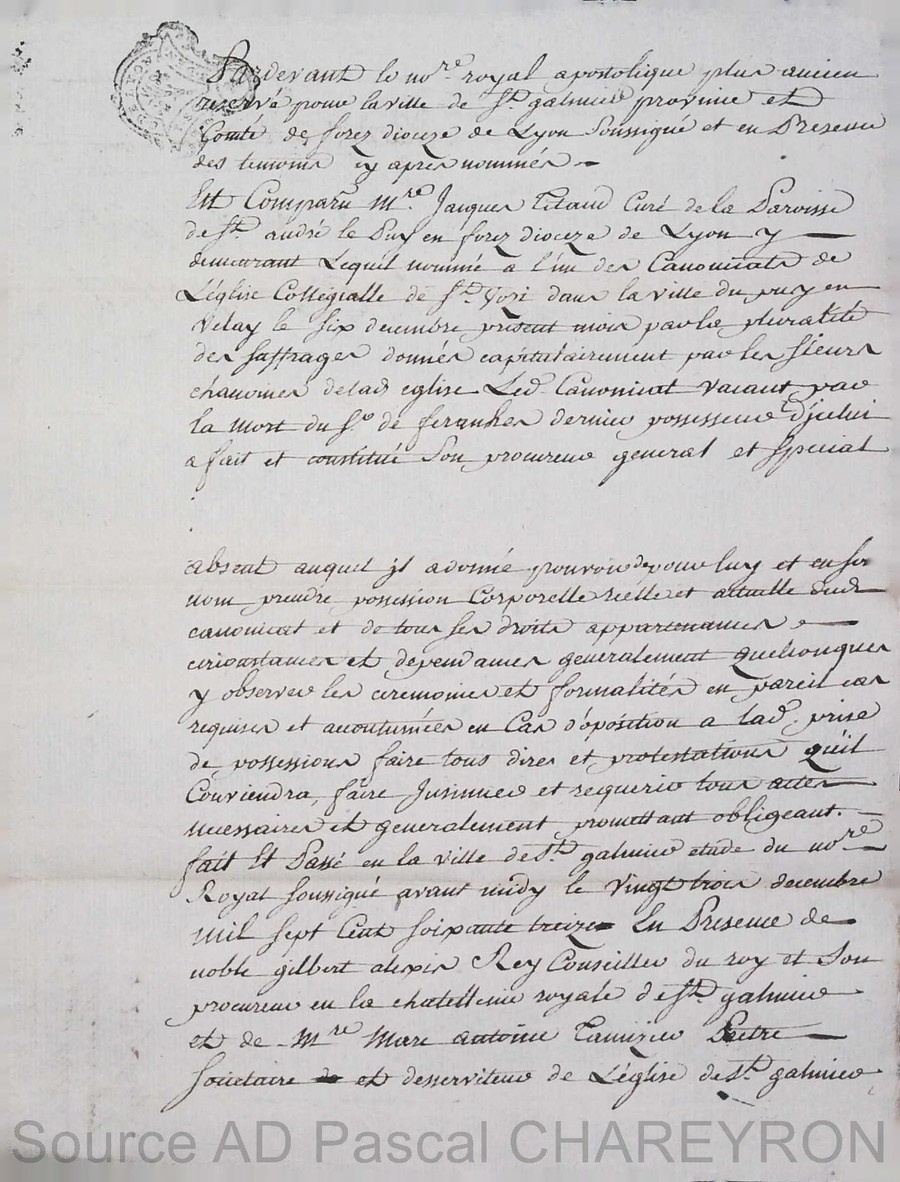 Pardevant le no.re royal apostolique plus ancien
reservé pour la ville de S.t galmier province et
Comté de forez dioceze de Lyon Soussigné et en Presence
des temoins cy apres nommés
Est Comparu M.re Jacques Titaud Curé de la Paroisse
de S.t andré le Puy en forez dioceze de Lyon y
demeurant Lequel nommé a l'un des Canonicats de
L'église Collégialle de S.t Vosi dans la ville du puy en
Velay le six decembre present mois par la pluralité
des suffrages donnés capitulairement par les sieurs
chanoines de lad eglise Led. Canonicat vacant par
la mort du S.r de dernier possesseur d'jcelui
a fait et constitué Son procureur general et special
absent auquel jl a donné pouvoir de pour luy et en son
nom prendre possession Corporelle réelle et actuelle dud.
canonicat et de tous ses droits appartenances
circonstances et dependances généralement quelsonques
y observer les ceremonies et formalités en pareil cas
requises et accoutumées en Cas d'oposition a lad. prise
de possession faire tous dires et protestations qu'il
Conviendra, faire Jnsinuer et requerir tous actes
necessaires et generalement promettant obligeant.
fait Et Passé en la ville de S.t galmier etude du no.re
Royal soussigné avant midy le vingt trois decembre
mil sept Cent soixante treize En Presence de
noble gilbert alexis Rey Conseiller du roy et Son
procureur en la chatellenie royale de S.t galmier
et de M.re Marc antoine Tamizier Pretre
societaire et desserviteur de L'église de S.t galmier
Source AD Pascal CHAREYRON